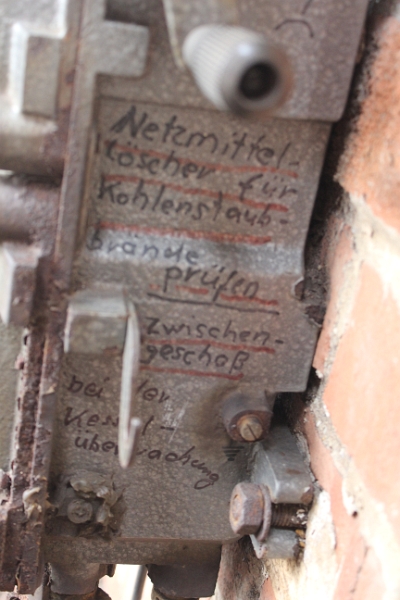 Netzmittel-
löscher für
Kohlenstaub-
brände
prüfen
zwischen-
geschoß
bei der
Kessel-
überwachung